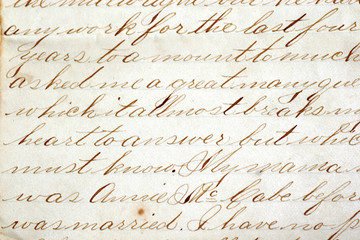 any work for the last four
years to a mount to much
asked me a great many qu
which it allmost breaks m
heart to answer but whic
must know. My mama
was Annie Mc Cabe befor
was married. I have no